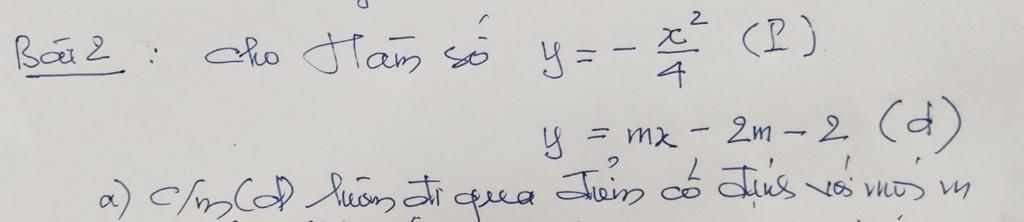 Bài 2 : Cho Hàm số y = - x²/4 (P)
y = mx - 2m - 2 (d)
a) C/m (d) luôn đi qua điểm cố định với mọi m